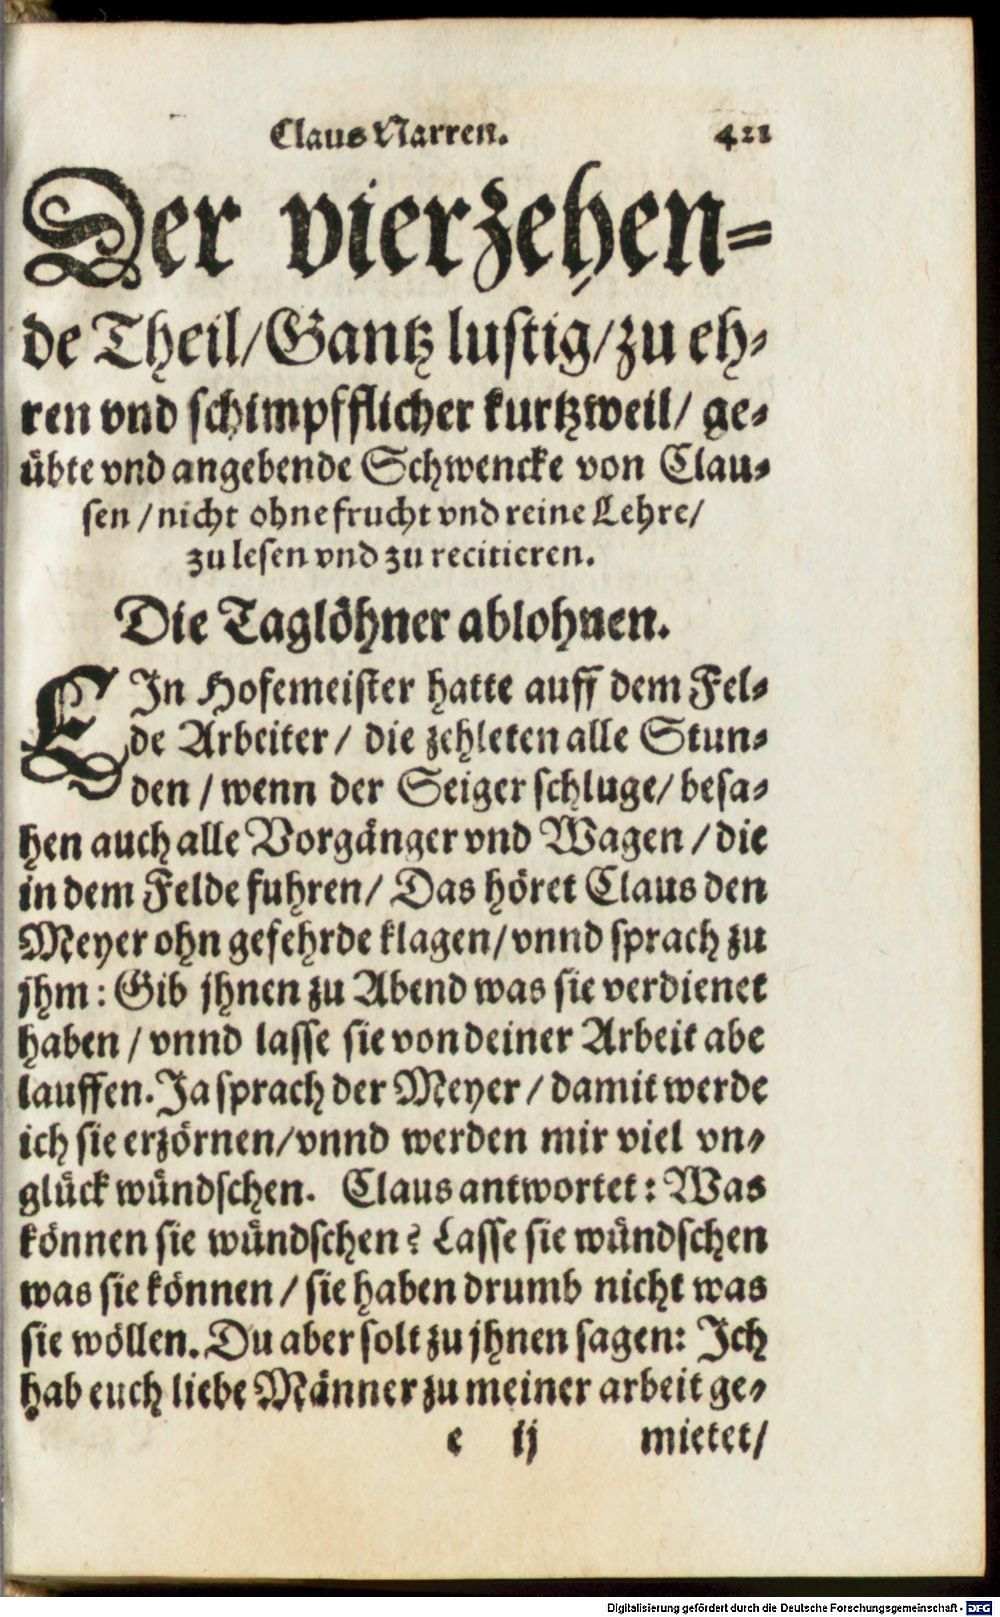 Claus Narren. 421
Der vierzehen-
de Theil/Gantz lustig/zu eh-
ren vnd schimpfflicher kurtzweil/ ge-
übte vnd angebende Schwencke von Clau-
sen/nicht ohne frucht vnd reine Lehre/
zu lesen vnd zu recitieren.
Die Taglöhner ablohnen.
EIn Hofemeister hatte auff dem Fel-
de Arbeiter/ die zehleten alle Stun-
den/wenn der Seiger schluge/ besa-
hen auch alle Vorgänger vnd Wagen/die
in dem Felde fuhren/ Das höret Claus den
Meyer ohn gefehrde klagen/vnnd sprach zu
jhm: Gib jhnen zu Abend was sie verdienet
haben/vnnd lasse sie von deiner Arbeit abe
lauffen. Ja sprach der Meyer/damit werde
ich sie erzörnen/vnnd werden mir viel vn-
glück wündschen. Claus antwortet: Was
können sie wündschen? Lasse sie wündschen
was sie können/sie haben drumb nicht was
sie wöllen. Du aber solt zu jhnen sagen: Ich
hab euch liebe Männer zu meiner arbeit ge-
e ij mietet/
Digitalisierung gefördert durch die Deutsche Forschungsgemeinschaft - DFG